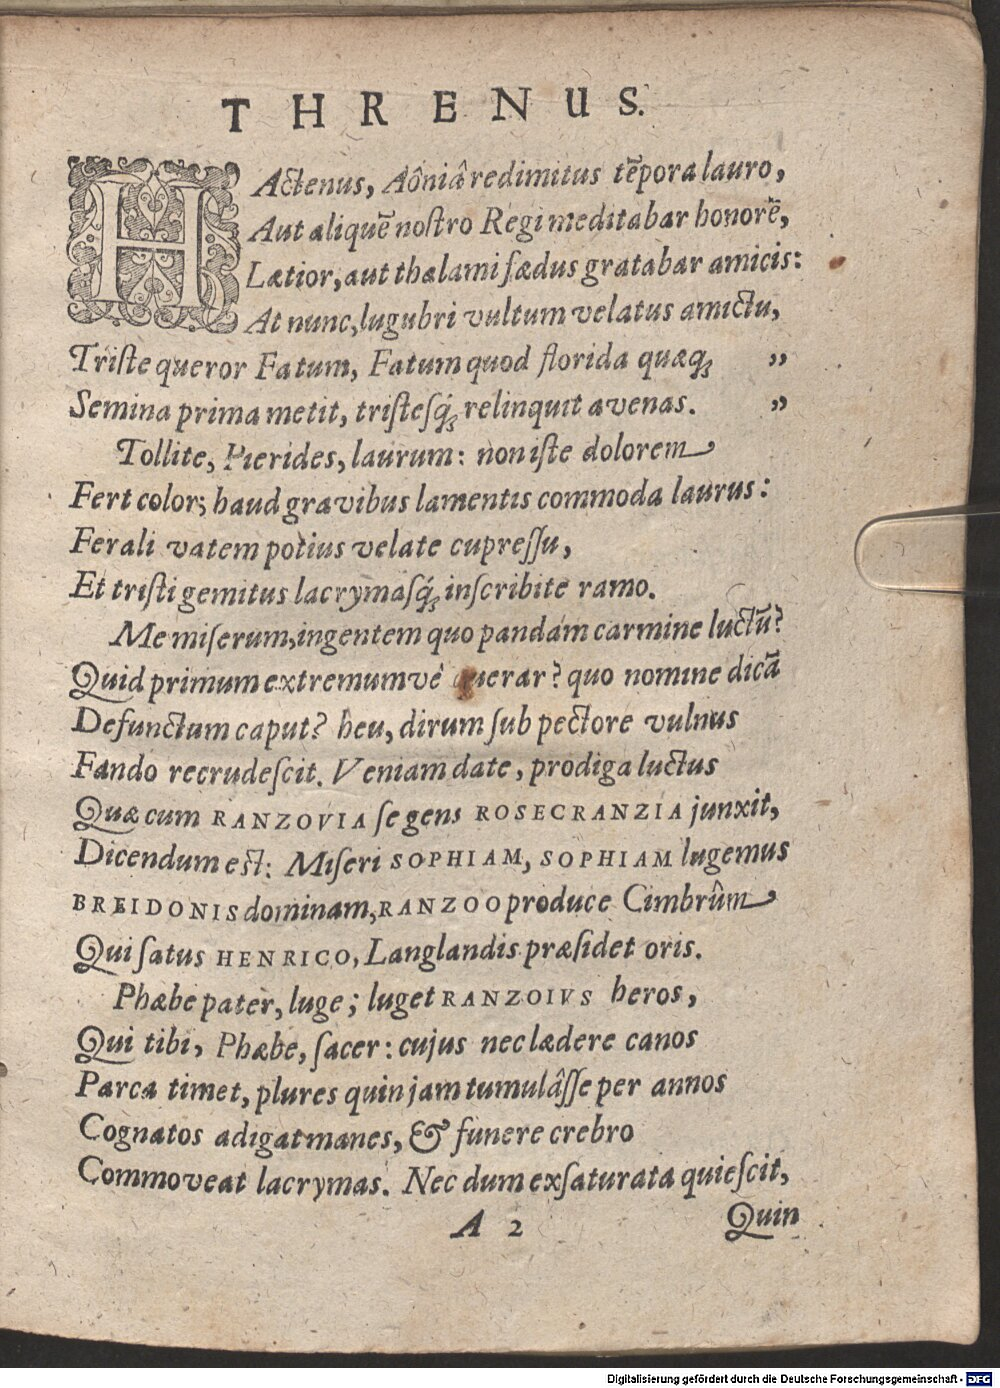 THRENUS.
HActenus, Aôniâ redimitus tẽpora lauro,
Aut aliquẽ nostro Regi meditabar honorẽ,
Lætior, aut thalami fædus gratabar amicis:
At nunc, lugubri vultum velatus amictu,
Triste queror Fatum, Fatum quod florida quæq; „
Semina prima metit, tristesq́; relinquit avenas. „
Tollite, Pierides, laurum: non iste dolorem
Fert color; haud gravibus lamentis commoda laurus:
Ferali vatem potius velate cupressu,
Et tristi gemitus lacrymasq́; inscribite ramo.
Me miserum, ingentem quo pandam carmine luctũ?
Quid primum extremumvè querar? quo nomine dicã
Defunctum caput? heu, dirum sub pectore vulnus
Fando recrudescit. Veniam date, prodiga luctus
Quæ cum RANZOVIA se gens ROSECRANZIA junxit,
Dicendum est: Miseri SOPHIAM, SOPHIAM lugemus
BREIDONIS dominam, RANZOO produce Cimbrûm
Qui satus HENRICO, Langlandis præsidet oris.
Phæbe pater, luge; luget RANZOIVS heros,
Qui tibi, Phæbe, sacer: cujus nec lædere canos
Parca timet, plures quin jam tumulâsse per annos
Cognatos adigat manes, & funere crebro
Commoveat lacrymas. Nec dum exsaturata quiescit,
A 2 Quin
Digitalisierung gefördert durch die Deutsche Forschungsgemeinschaft - DFG